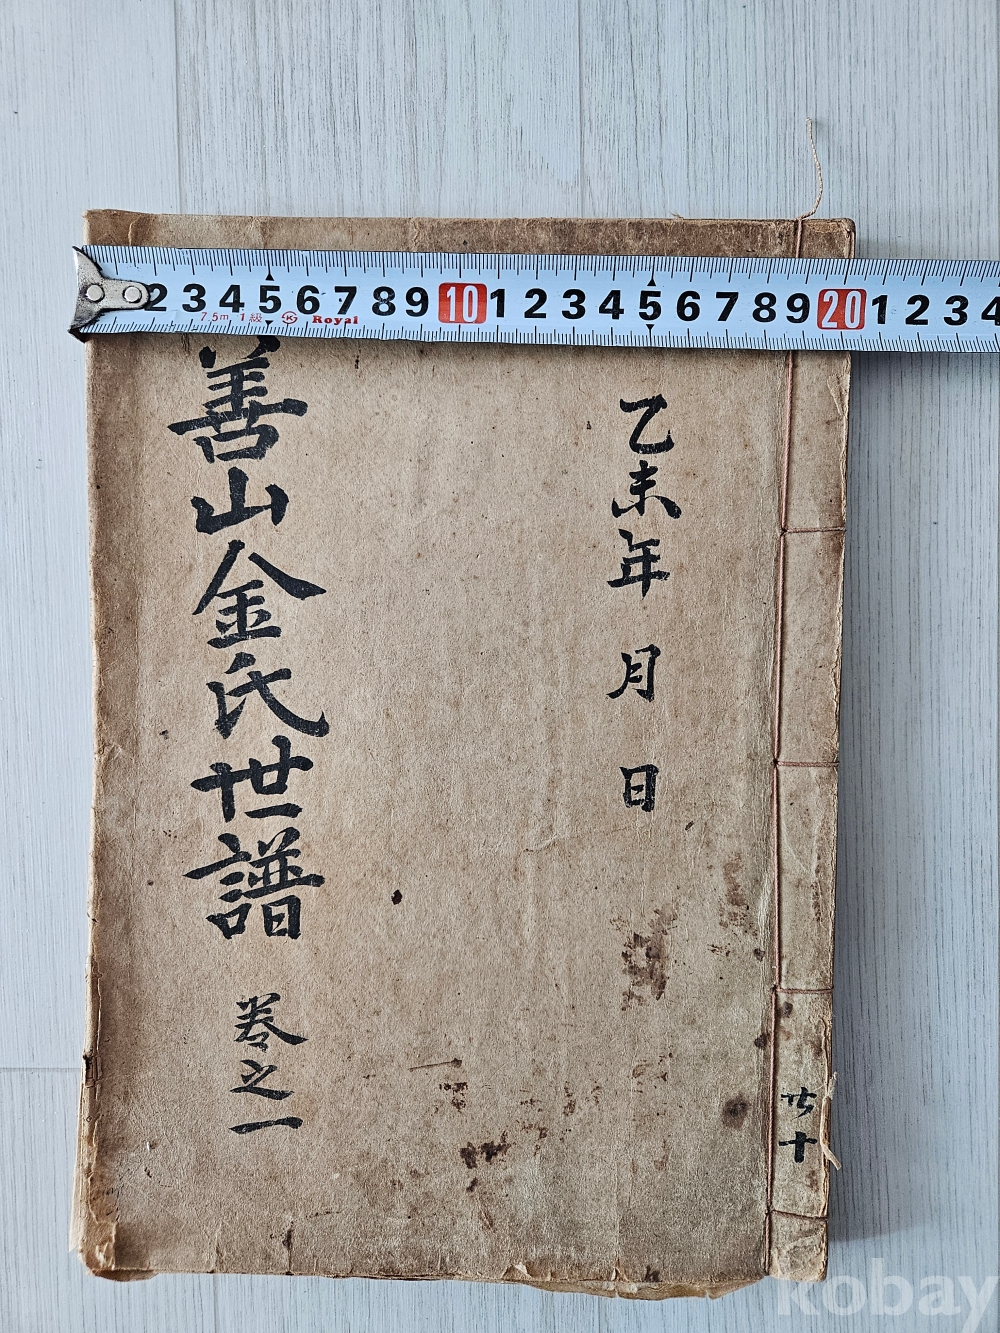 2 3 4 5 6 7 8 9 10 1 2 3 4 5 6 7 8 9 20 1 2 3 4
7.5m 1級 K Royal
乙未年 月 日
善山金氏世譜 卷之一
共十
kobay